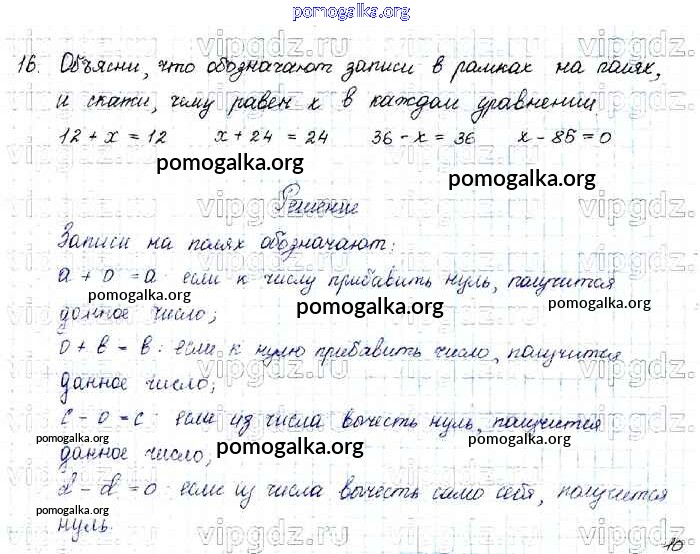 pomogalka.org
16. Объясни, что обозначают записи в рамках на полях,
и скажи, чему равен x в каждом уравнении.
12 + x = 12 x + 24 = 24 36 - x = 36 x - 85 = 0
pomogalka.org pomogalka.org
Решение
Записи на полях обозначают:
a + 0 = a: если к числу прибавить нуль, получится
pomogalka.org pomogalka.org pomogalka.org
данное число;
0 + b = b: если к нулю прибавить число, получится
данное число;
c - 0 = c: если из числа вычесть нуль, получится
pomogalka.org pomogalka.org pomogalka.org
данное число;
d - d = 0: если из числа вычесть само себя, получается
нуль.
10